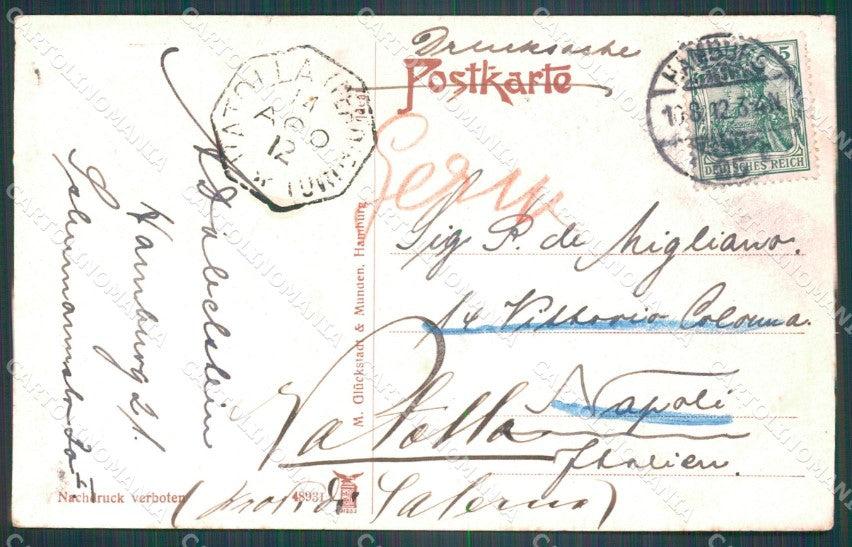 Drucksache
Postkarte
5
DEUTSCHES REICH
HAMBURG
12.3-4N.
14
AGO
12
Germ
Sig. P. de Migliano.
14 Vittorio Colonna.
Napoli
Vatolla
Italien.
Salerno)
Hamburg 21.
M. Glückstadt & Münden, Hamburg.
Nachdruck verboten
48931
CARTOLINOMANIA